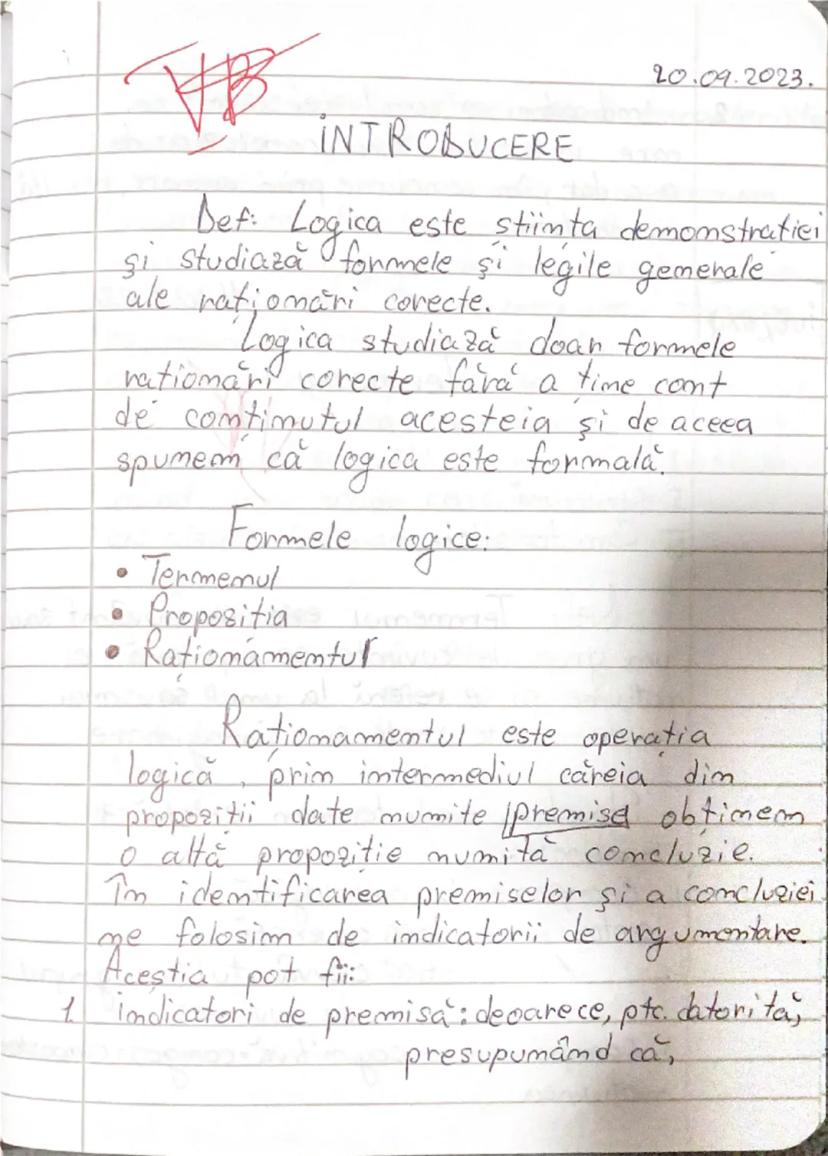 VB
20.09.2023.
INTRODUCERE
Def: Logica este știința demonstratiei
și studiază formele și legile generale
ale raționări corecte.
Logica studiază doar formele
rationări corecte fără a ține cont
de conținutul acesteia și de aceea
spunem că logica este formală.
Formele logice:
• Termenul
• Propoziția
• Raționamentul
Raționamentul este operația
logică, prin intermediul căreia din
propoziții date numite premise obținem
o altă propoziție numită concluzie.
În identificarea premiselor și a concluziei
ne folosim de indicatorii de argumentare.
Aceștia pot fii:
1. indicatori de premisă: deoarece, ptc. datorită,
presupunând că,